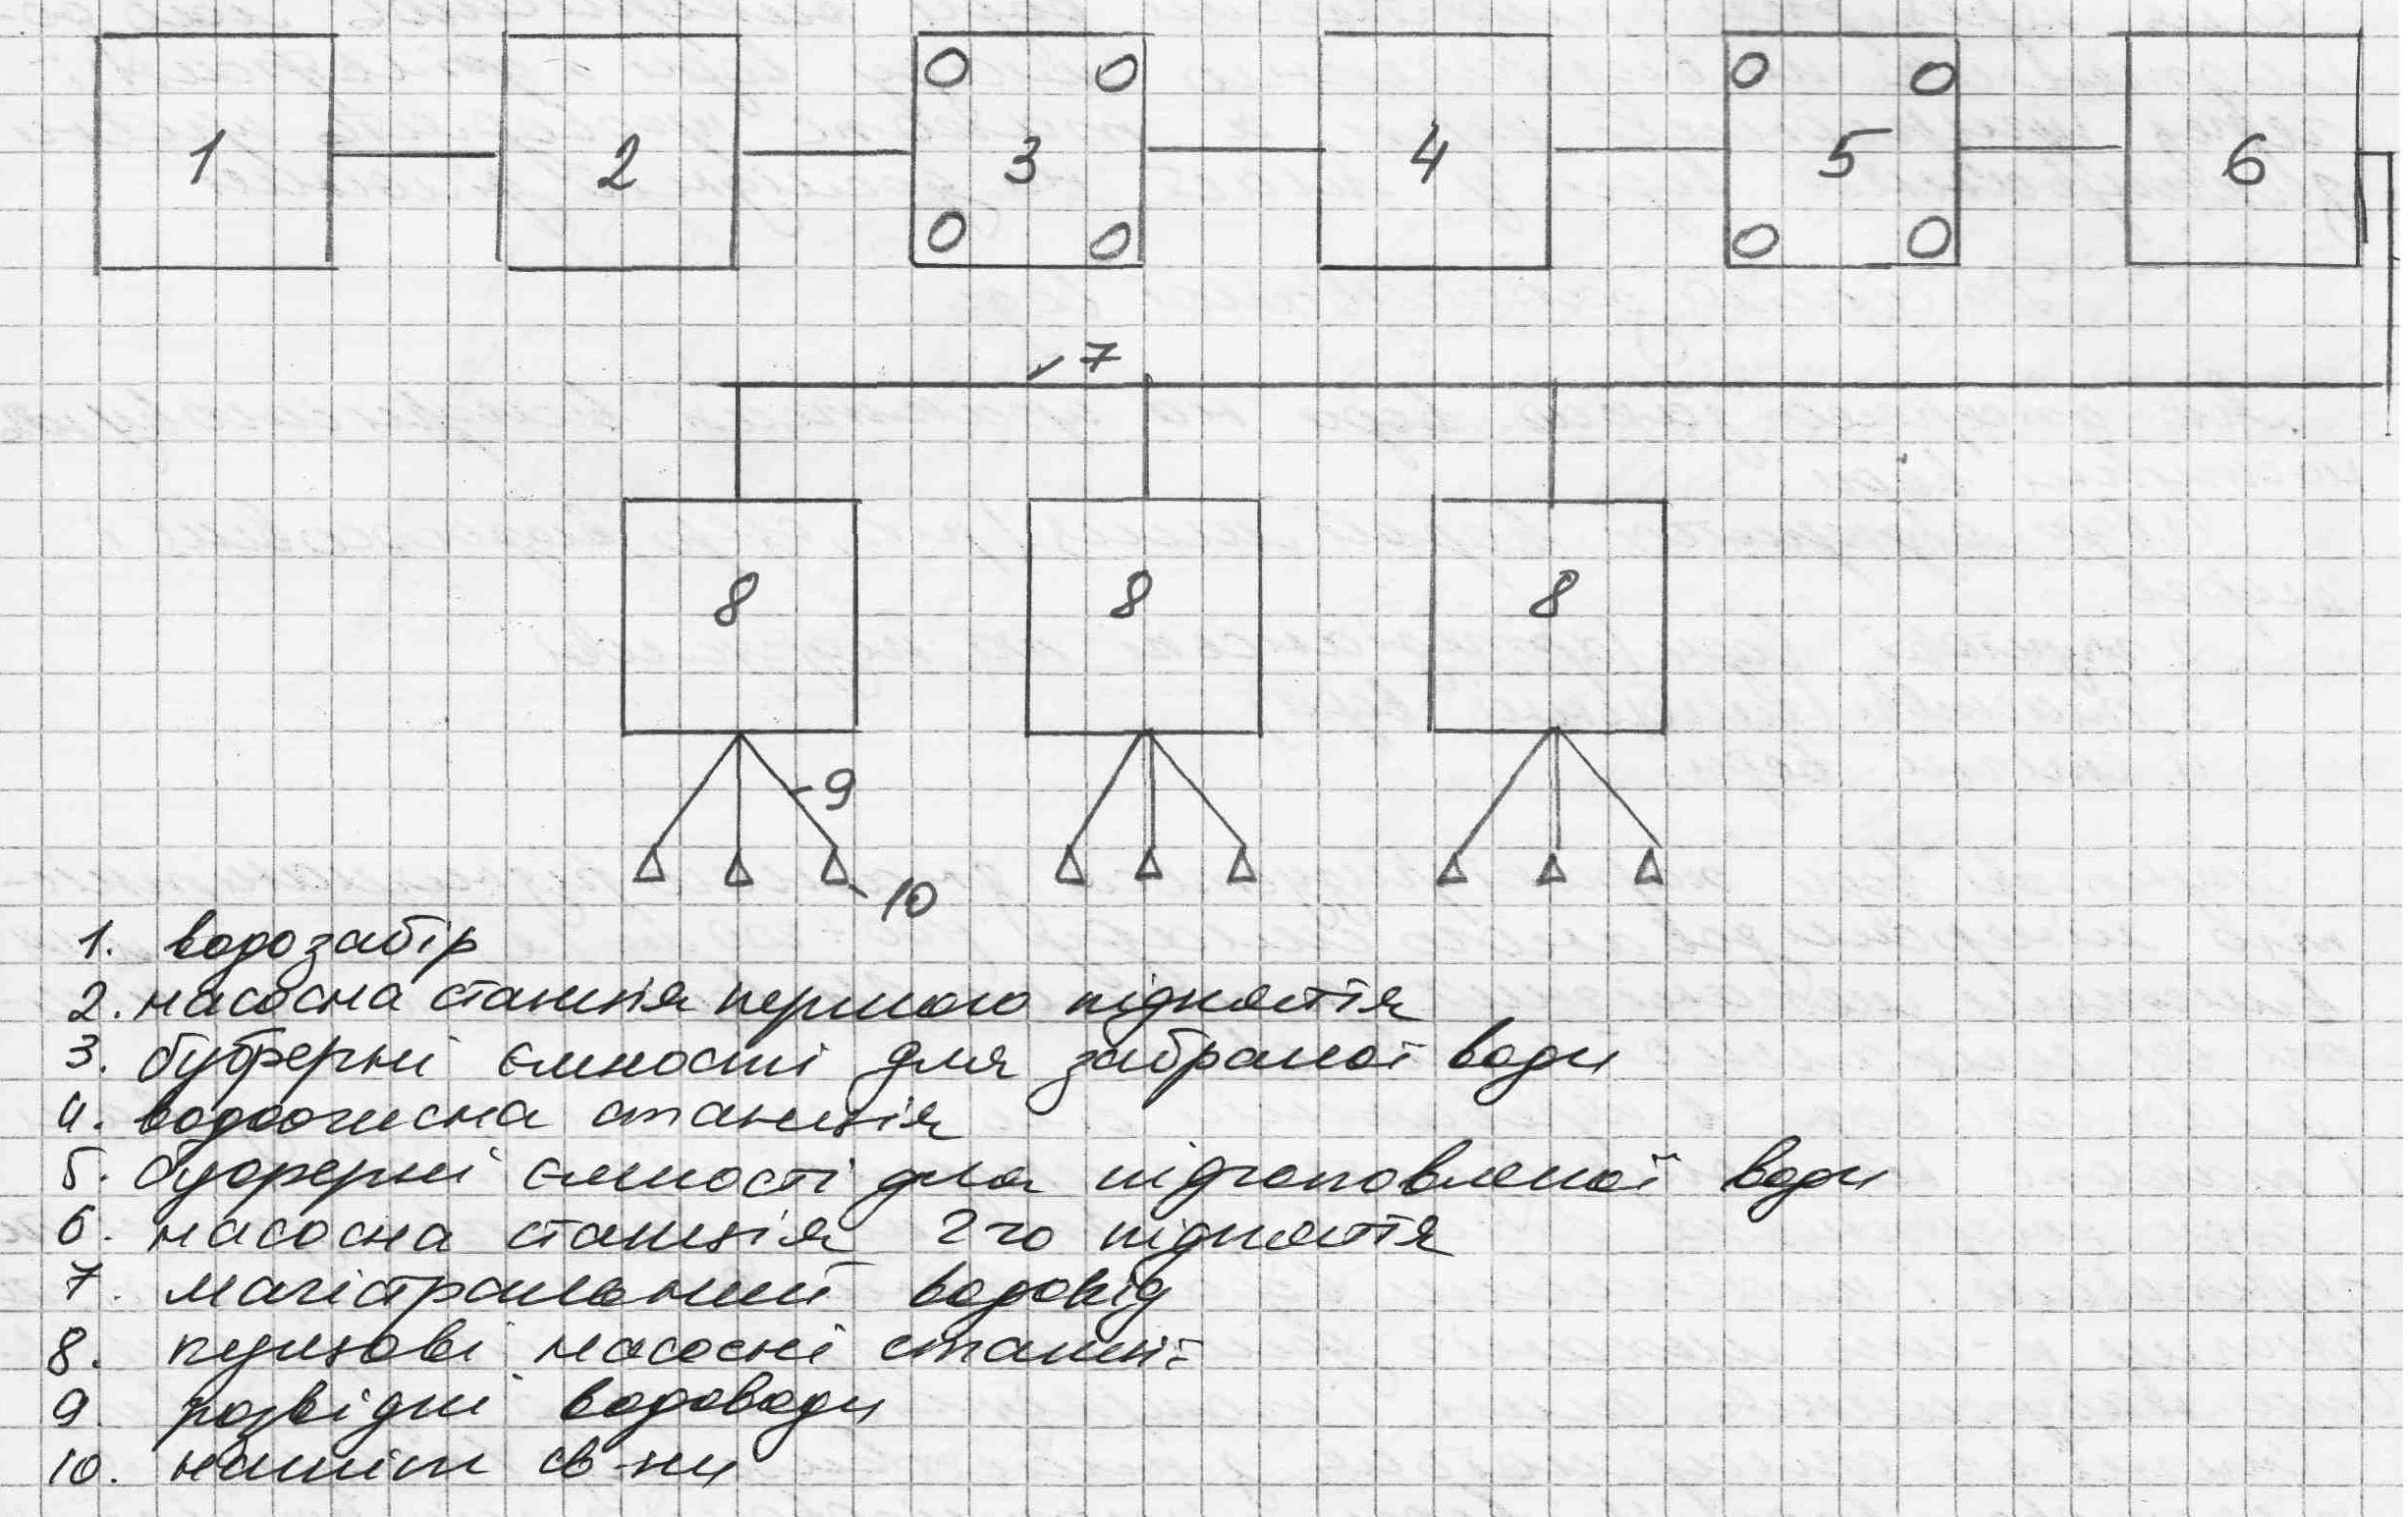 1 2 3 4 5 6
7
8 8 8
9
10
1. водозабір
2. насосна станція першого підняття
3. буферні ємності для забраної води
4. водоочисна станція
5. буферні ємності для підготовленої води
6. насосна станція 2го підняття
7. магістральний водовід
8. кущові насосні станції
9 розвідні водоводи
10. нагніт св-ни